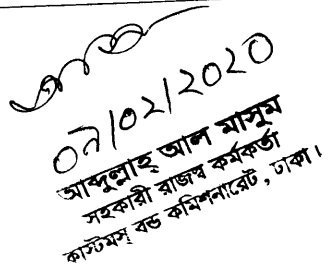 ০৭/০২/২০২০
আব্দুল্লাহ্ আল মাসুম
সহকারী রাজস্ব কর্মকর্তা
কাস্টমস্ বন্ড কমিশনারেট, ঢাকা।